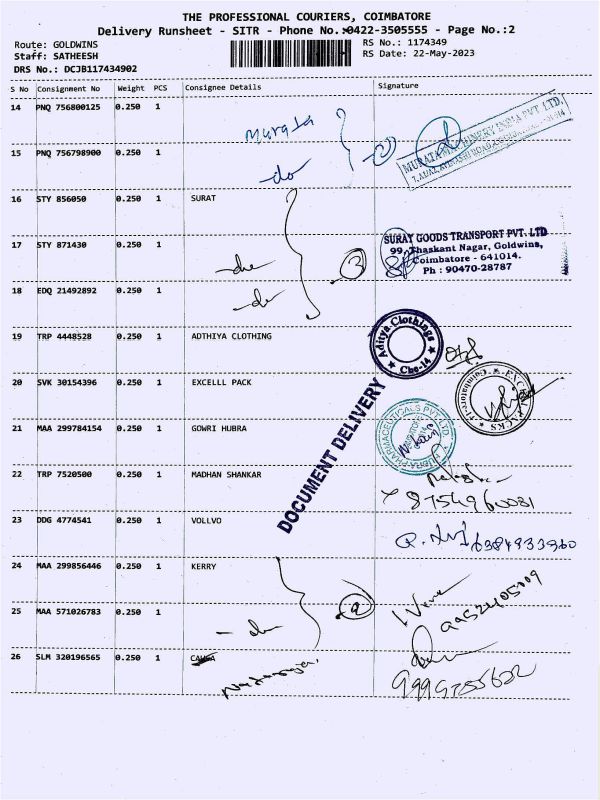 THE PROFESSIONAL COURIERS, COIMBATORE
Delivery Runsheet - SITR - Phone No.:0422-3505555 - Page No.:2
Route: GOLDWINS
RS No.: 1174349
Staff: SATHEESH
RS Date: 22-May-2023
DRS No.: DCJB117434902
S No Consignment No Weight PCS Consignee Details Signature
14 PNQ 756800125 0.250 1
murata
MURATA MACHINERY INDIA PVT. LTD.
15 PNQ 756798900 0.250 1
do
2
16 STY 856050 0.250 1 SURAT
17 STY 871430 0.250 1
do
3
SURAT GOODS TRANSPORT PVT. LTD
99, Thaskant Nagar, Goldwins,
Coimbatore - 641014.
Ph : 90470-28787
18 EDQ 21492892 0.250 1
do
19 TRP 4448528 0.250 1 ADTHIYA CLOTHING
Aditya Clothings
Cbe-14
20 SVK 30154396 0.250 1 EXCELLL PACK
DOCUMENT DELIVERY
21 MAA 299784154 0.250 1 GOWRI HUBRA
22 TRP 7520500 0.250 1 MADHAN SHANKAR
8754960081
23 DDG 4774541 0.250 1 VOLLVO
6384933960
24 MAA 299856446 0.250 1 KERRY
25 MAA 571026783 0.250 1
do
2
26 SLM 320196565 0.250 1